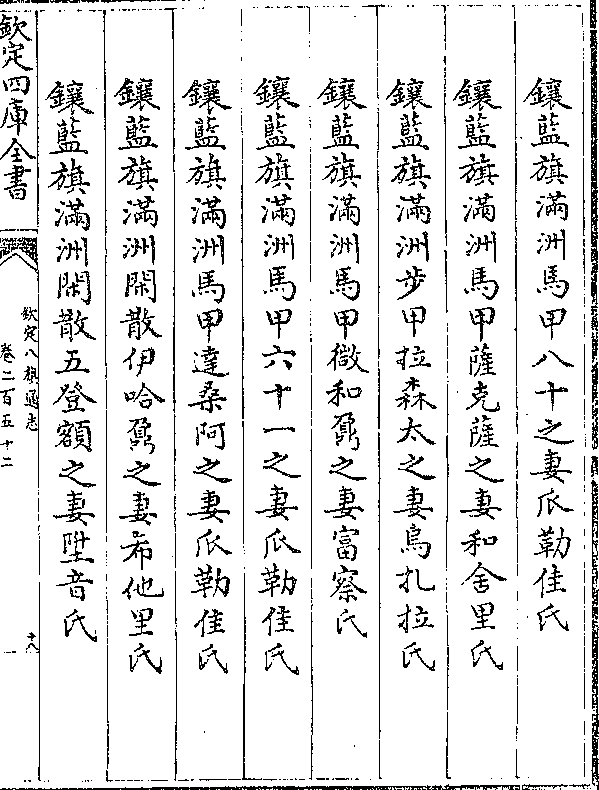 鑲藍旗滿洲馬甲八十之妻瓜勒佳氏
鑲藍旗滿洲馬甲薩克薩之妻和舍里氏
鑲藍旗滿洲步甲拉森太之妻烏扎拉氏
鑲藍旗滿洲馬甲徵和鼐之妻富察氏
鑲藍旗滿洲馬甲六十一之妻瓜勒佳氏
鑲藍旗滿洲馬甲達桑阿之妻瓜勒佳氏
鑲藍旗滿洲閑散伊哈鼐之妻希他里氏
鑲藍旗滿洲閑散五登額之妻墬音氏
欽定四庫全書
欽定八旗通志
卷二百五十二
十八
一